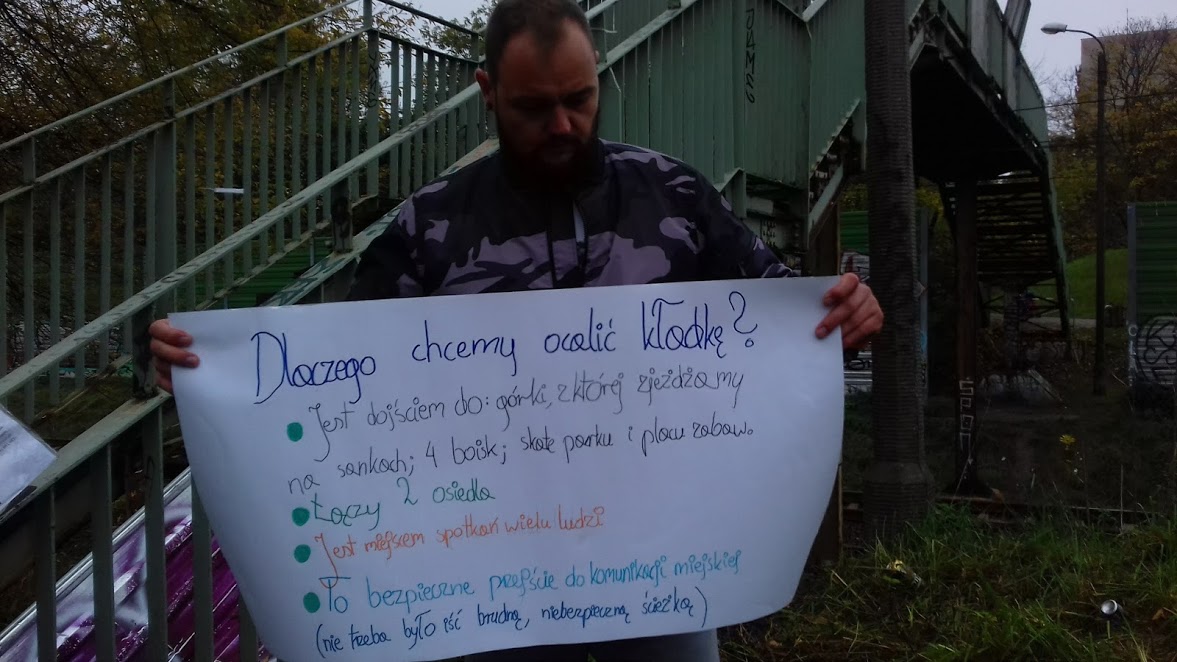 Dlaczego chcemy ocalić kładkę?
Jest dojściem do: górki, z której zjeżdżamy
na sankach; 4 boisk; skate parku i placu zabaw.
Łączy 2 osiedla
Jest miejscem spotkań wielu ludzi
To bezpieczne przejście do komunikacji miejskiej
(nie trzeba było iść brudną, niebezpieczną, ścieżką)